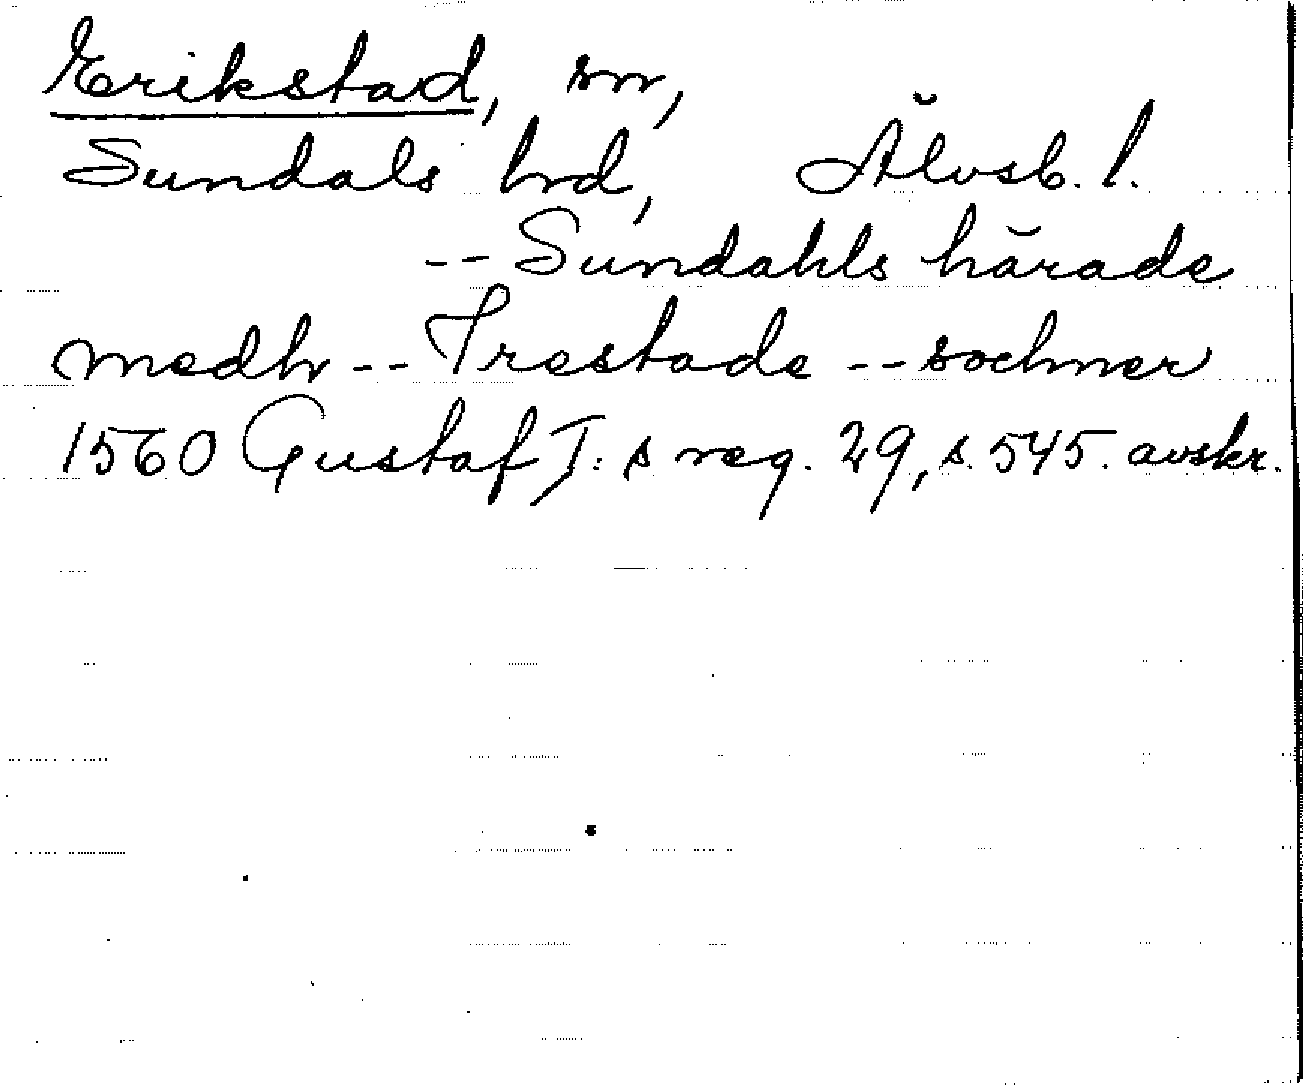 Erikstad, sn,
Sundals hd, Älvsb. l.
-- Sundahls härade
medh -- Irestade -- sochner
1560 Gustaf I: s reg. 29, s. 545. avskr.